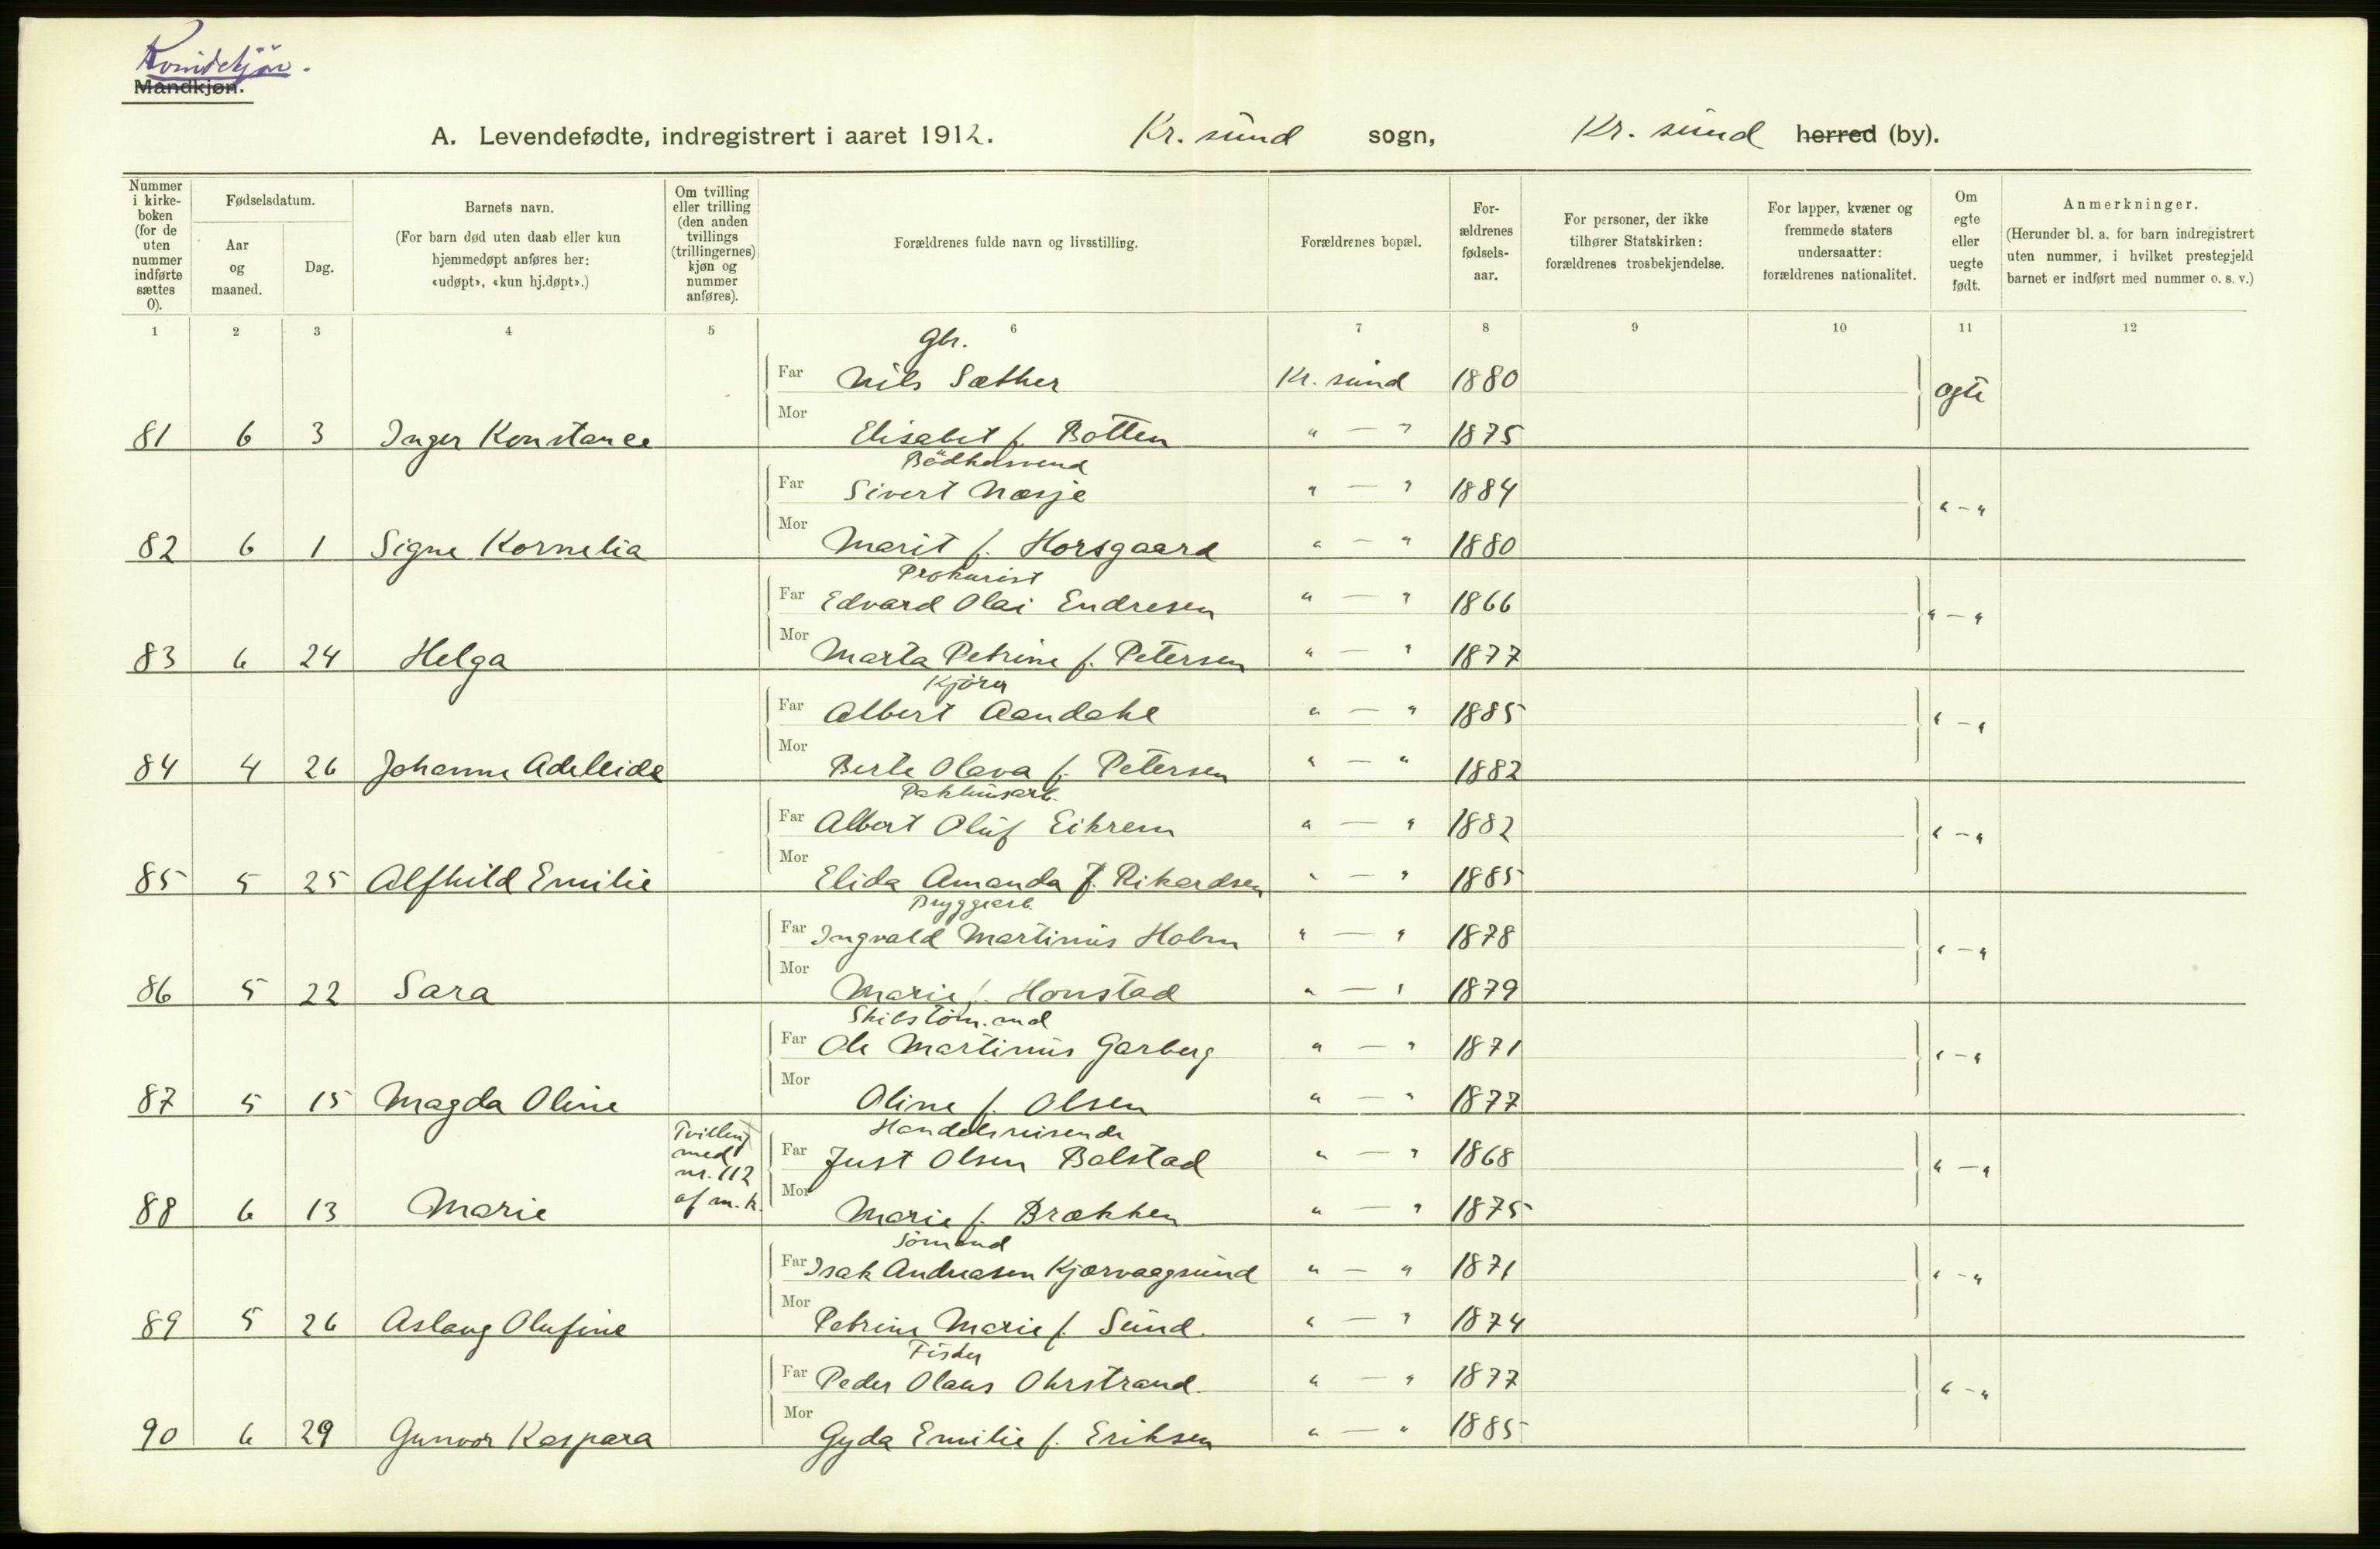 Kvindekjøn.
Mandkjøn.
A. Levendefødte, indregistrert i aaret 1912. Kr. sund sogn, Kr. sund herred (by).
Nummer i kirkeboken (for de uten nummer indførte sættes 0).
Fødselsdatum.
Aar og maaned.
Dag.
Barnets navn.
(For barn død uten daab eller kun hjemmedøpt anføres her: «udøpt», «kun hj.døpt».)
Om tvilling eller trilling (den anden tvillings (trillingernes) kjøn og nummer anføres).
Forældrenes fulde navn og livsstilling.
Forældrenes bopæl.
Forældrenes fødselsaar.
For personer, der ikke tilhører Statskirken: forældrenes trosbekjendelse.
For lapper, kvæner og fremmede staters undersaatter: forældrenes nationalitet.
Om egte eller uegte født.
Anmerkninger.
(Herunder bl. a. for barn indregistrert uten nummer, i hvilket prestegjeld barnet er indført med nummer o. s. v.)
1 2 3 4 5 6 7 8 9 10 11 12
Gbr.
Far Nils Sæther Kr. sund 1880 egte
81 6 3 Inger Konstance Mor Elisabet f. Botten " — " 1875
Bödkersvend
Far Sivert Næsje " — " 1884 " — "
82 6 1 Signe Kornelia Mor Marit f. Horsgaard " — " 1880
Prokurist
Far Edvard Olai Endresen " — " 1866 " — "
83 6 24 Helga Mor Marta Petrine f. Petersen " — " 1877
Kjörer
Far Albert Aandahl " — " 1885 " — "
84 4 26 Johanne Adelleide Mor Berte Olava f. Petersen " — " 1882
Pakhusarb.
Far Albert Oluf Eikrem " — " 1882 " — "
85 5 25 Alfhild Emilie Mor Elida Amanda f. Rikardsen " — " 1885
Bryggearb.
Far Ingvald Martinus Holm " — " 1878 " — "
86 5 22 Sara Mor Marie f. Honstad " — " 1879
Skibstöm.md
Far Ole Martinus Garberg " — " 1871 " — "
87 5 15 Magda Oline Mor Oline f. Olsen " — " 1877
Tvilling med nr. 112 af m. k.
Handelsreisende
Far Just Olsen Bolstad " — " 1868 " — "
88 6 13 Marie Mor Marie f. Brækken " — " 1875
Sömand
Far Isak Andreasen Kjærvaagsund " — " 1871 " — "
89 5 26 Aslaug Olufine Mor Petrine Marie f. Sund. " — " 1874
Fisker
Far Peder Olaus Ohrstrand. " — " 1877 " — "
90 6 29 Gunvor Kaspara Mor Gyda Emilie f. Eriksen " — " 1885